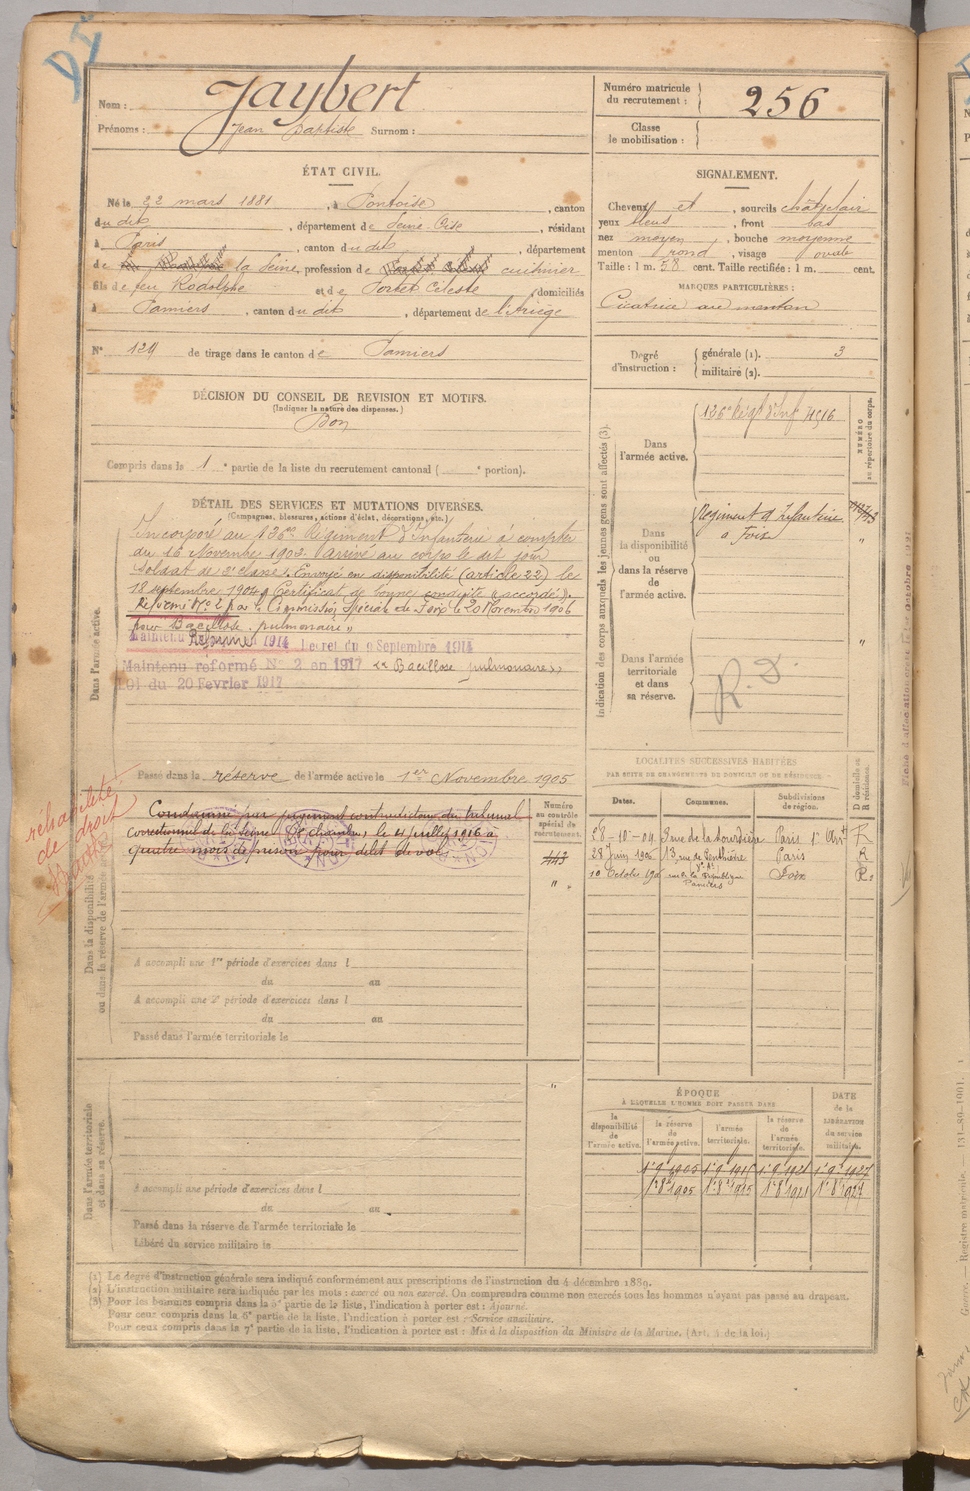 Nom : Jaybert
Prénoms : Jean Baptiste Surnom :
Numéro matricule du recrutement : 256
Classe de mobilisation :
ÉTAT CIVIL.
Né le 22 mars 1881, à Pontoise, canton
du dit, département de Seine-Oise, résidant
à Paris, canton du dit, département
de la Seine, profession de cuisinier
fils de feu Rodolphe et de Portet Céleste, domiciliés
à Pamiers, canton du dit, département de l'Ariège
N° 129 de tirage dans le canton de Pamiers
SIGNALEMENT.
Cheveux et, sourcils chât clair
yeux bleus, front bas
nez moyen, bouche moyenne
menton rond, visage ovale
Taille : 1 m. 58 cent. Taille rectifiée : 1 m. cent.
MARQUES PARTICULIÈRES :
Cicatrice au menton
Degré d'instruction : générale (1). 3
militaire (2).
DÉCISION DU CONSEIL DE REVISION ET MOTIFS.
(Indiquer la nature des dispenses.)
Bon
Compris dans la 1e partie de la liste du recrutement cantonal ( e portion).
DÉTAIL DES SERVICES ET MUTATIONS DIVERSES.
(Campagnes, blessures, actions d'éclat, décorations, etc.)
Dans l'armée active.
Incorporé au 126e Régiment d'Infanterie à compter
du 16 Novembre 1902. Arrivé au corps le dit jour
soldat de 2e classe. Envoyé en disponibilité (article 22) le
18 septembre 1904. Certificat de bonne conduite "accordé".
Réformé N° 2 par la Commission Spéciale de Foix le 20 Novembre 1906
pour Bacillose pulmonaire "
Maintenu Réformé 1914 Decret du 9 Septembre 1914
Maintenu reformé N° 2 en 1917 "Bacillose pulmonaire"
Loi du 20 Fevrier 1917
Passé dans la réserve de l'armée active le 1er Novembre 1905
Dans la disponibilité ou dans la réserve de l'armée active.
Condamné par jugement contradictoire du tribunal
Correctionnel de la Seine (8e chambre) le 4 juillet 1916 à
quatre mois de prison pour délit de vol
réhabilité
de droit
Numéro au contrôle spécial du recrutement.
443
"
A accompli une 1re période d'exercices dans l
du au
A accompli une 2e période d'exercices dans l
du au
Passé dans l'armée territoriale le
Dans l'armée territoriale et dans sa réserve.
"
A accompli une période d'exercices dans l
du au
Passé dans la réserve de l'armée territoriale le
Libéré du service militaire le
Indication des corps auxquels les jeunes gens sont affectés (3).
NUMÉRO au répertoire du corps.
Dans l'armée active. 126e Régt d'Inf 4516
Dans la disponibilité ou dans la réserve de l'armée active. Régiment d'Infanterie
à Foix
"
Dans l'armée territoriale et dans sa réserve. R. D.
"
LOCALITÉS SUCCESSIVES HABITÉES
PAR SUITE DE CHANGEMENTS DE DOMICILE OU DE RÉSIDENCE.
Dates. Communes. Subdivisions de région. D domicile ou R résidence.
28-10-04. 3 rue de la Sourdière Paris 1er Arrt R
28 Juin 1905 13 rue de Penthièvre Paris R
10 Octobre rue de la République Pamiers Foix R.
ÉPOQUE
À LAQUELLE L'HOMME DOIT PASSER DANS
la disponibilité de l'armée active. la réserve de l'armée active. l'armée territoriale. la réserve de l'armée territoriale.
DATE de la LIBÉRATION du service militaire.
1er 9e 1905 1er 9e 1915 1er 9e 1921 1er 9e 1927
1er 8e 1905 1er 8e 1915 1er 8e 1921 1er 8e 1927
(1) Le degré d'instruction générale sera indiqué conformément aux prescriptions de l'instruction du 4 décembre 1889.
(2) L'instruction militaire sera indiquée par les mots : exercé ou non exercé. On comprendra comme non exercés tous les hommes n'ayant pas passé au drapeau.
(3) Pour les hommes compris dans la 5e partie de la liste, l'indication à porter est : Ajourné.
Pour ceux compris dans la 6e partie de la liste, l'indication à porter est : Service auxiliaire.
Pour ceux compris dans la 7e partie de la liste, l'indication à porter est : Mis à la disposition du Ministre de la Marine. (Art. 4 de la loi.)